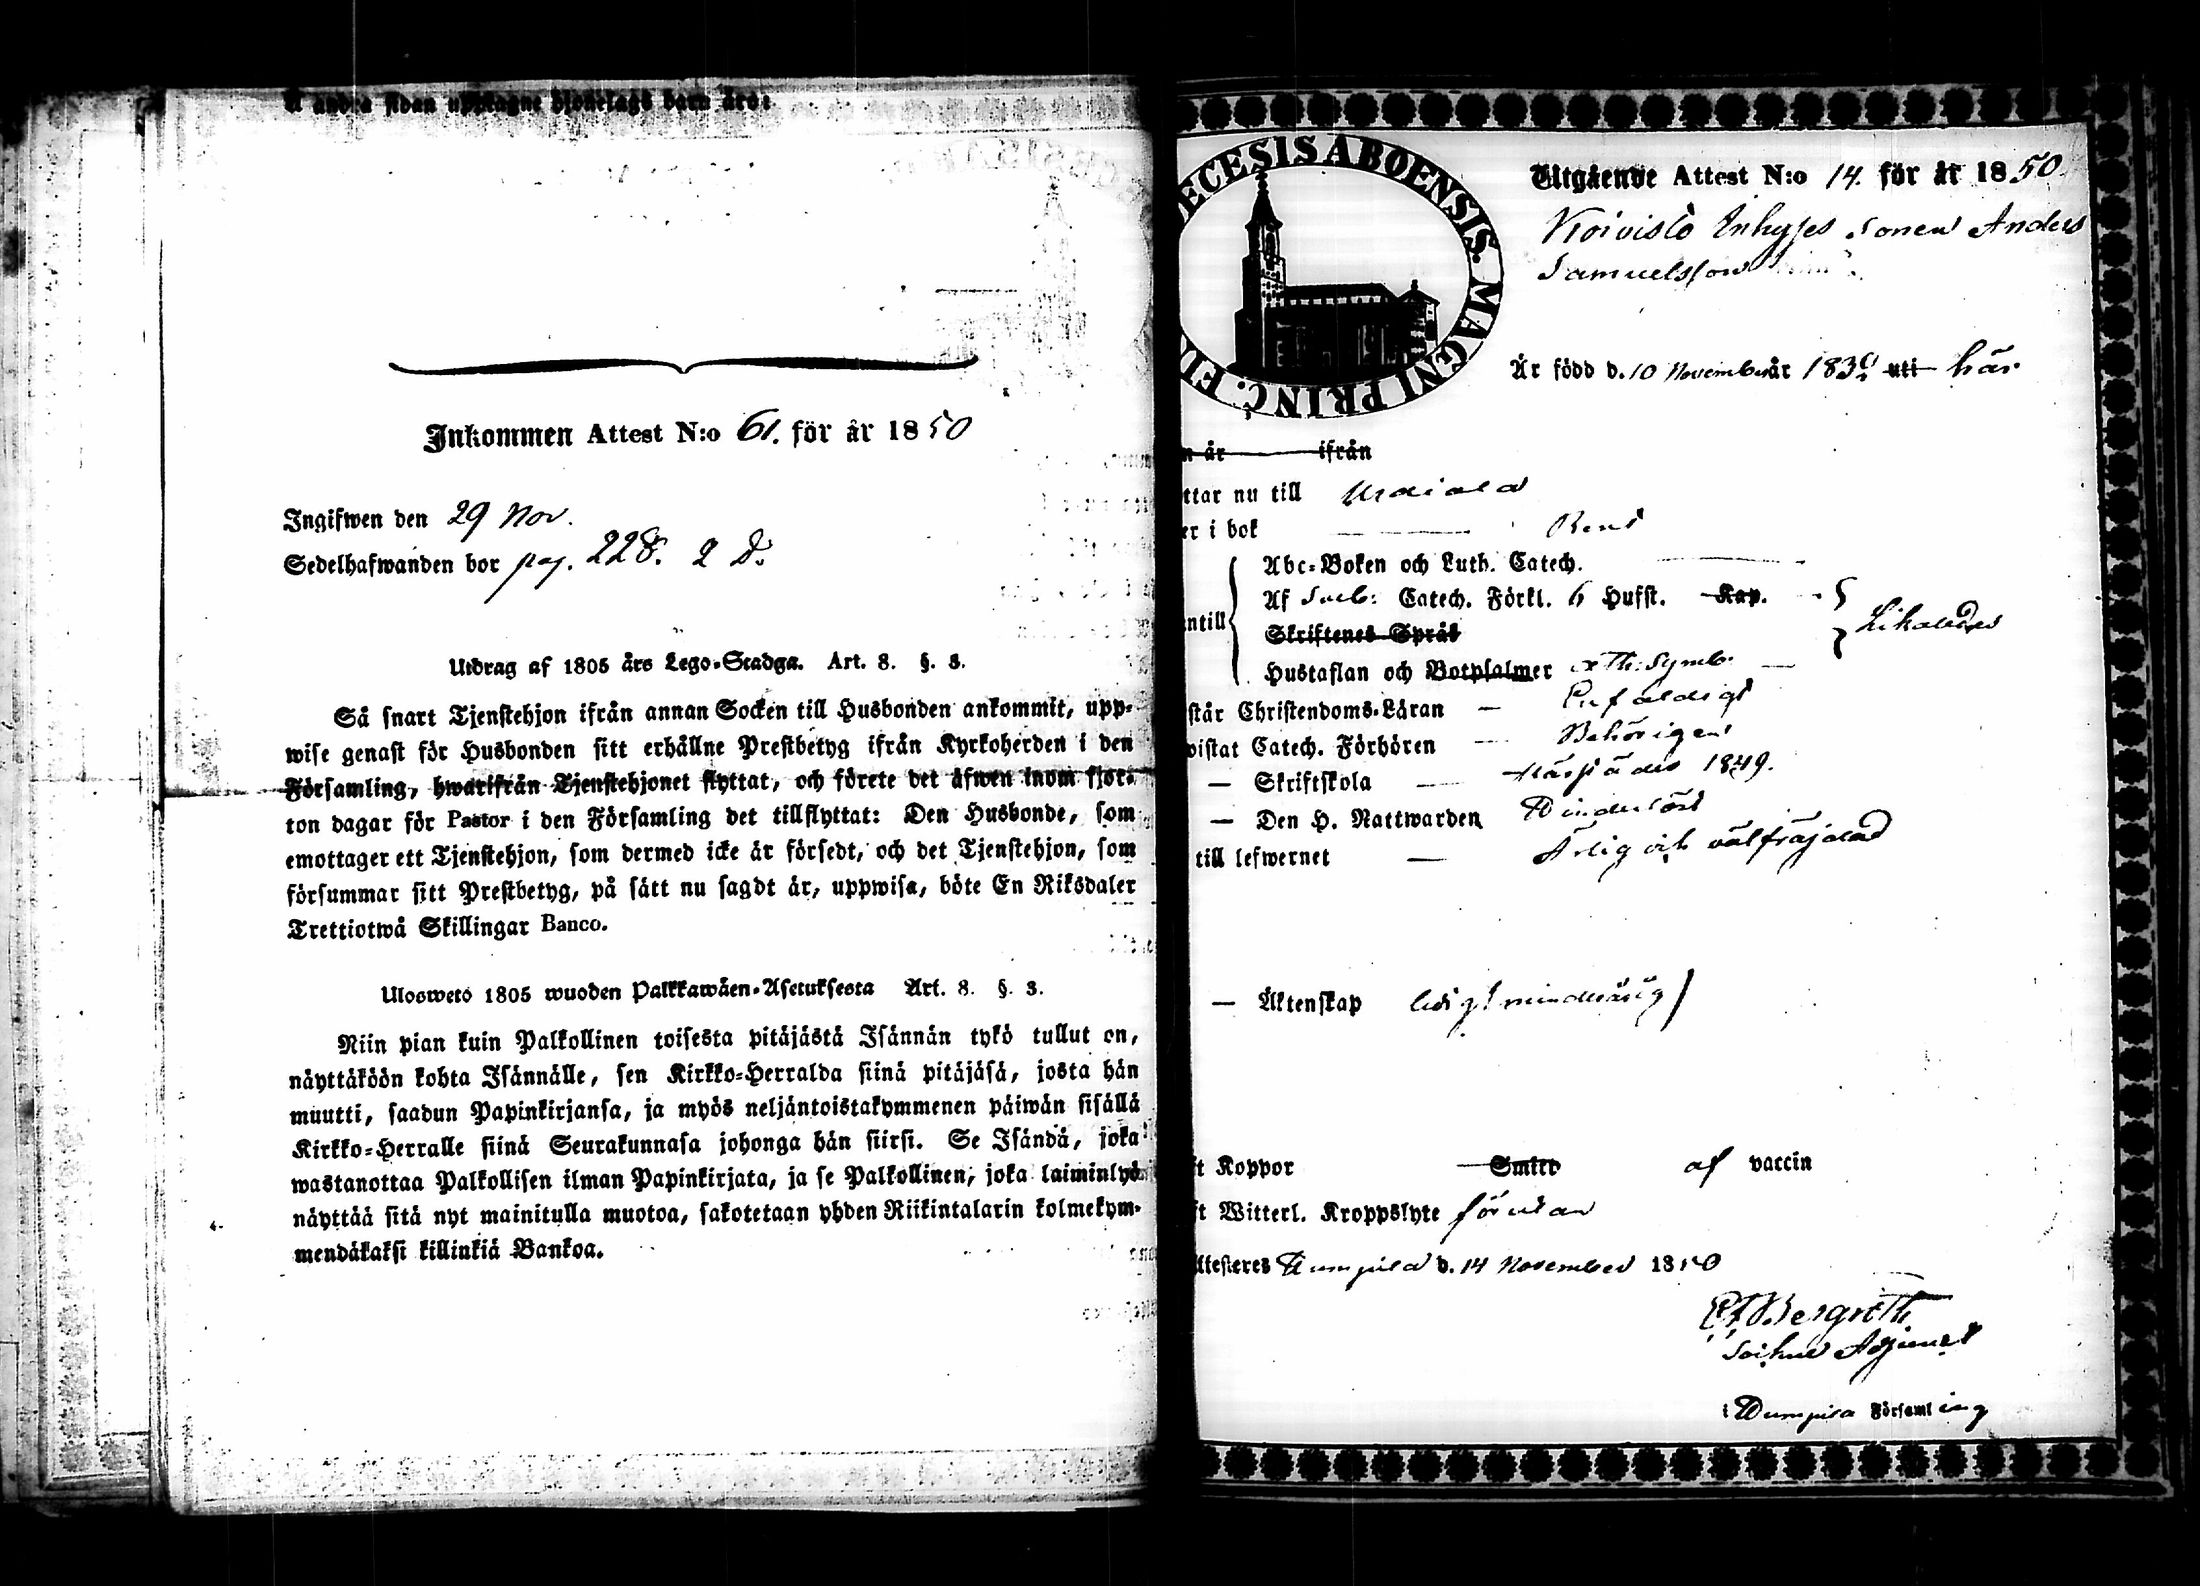 å andra sidan upptagne hjonelags barn äro:
Inkommen Attest N:o 61. för år 1850
Ingifwen den 29 Nov.
Sedelhafwanden bor pag. 228. 2 D.
Utdrag af 1805 års Lego-Stadga. Art. 8. §. 3.
Så snart Tjenstehjon ifrån annan Socken till Husbonden ankommit, upp-
wise genast för Husbonden sitt erhållne Prestbetyg ifrån Kyrkoherden i den
Församling, hwarifrån Tjenstehjonet flyttat, och förete det äfwen inom fjor-
ton dagar för Pastor i den Församling det tillflyttat: Den Husbonde, som
emottager ett Tjenstehjon, som dermed icke är försedt, och det Tjenstehjon, som
försummar sitt Prestbetyg, på sätt nu sagdt är, uppwisa, böte En Riksdaler
Trettiotwå Skillingar Banco.
Ulosweto 1805 wuoden Palkkawäen-Asetuksesta Art. 8. §. 3.
Niin pian kuin Palkollinen toisesta pitäjästä Isännän tykö tullut on,
näyttäköön kohta Isännälle, sen Kirkko-Herralda siinä pitäjäsä, josta hän
muutti, saadun Papinkirjansa, ja myös neljäntoistakymmenen päiwän sisällä
Kirkko-Herralle siinä Seurakunnasa johonga hän siirsi. Se Isändä, joka
wastanottaa Palkollisen ilman Papinkirjata, ja se Palkollinen, joka laiminlyö
näyttää sitä nyt mainitulla muotoa, sakotetaan yhden Riikintalarin kolmekym-
mendäkaksi killinkiä Bankoa.
ECESIS ABOENSIS. MAGNI PRINC. FIN
Utgående Attest N:o 14. för år 1850.
Koivisto Inhyses sonen Anders
Samuelsson
Är född d. 10 November år 183 uti här
n år ifrån
ttar nu till Urdiala
er i bok Rent
Abc-Boken och Luth. Catech.
Af Sveb: Catech. Förkl. 6 Hufst. Kap.
ntill Skriftenes Språk
Likaledes
Hustaflan och Botpsalmer Ath: Symb.
står Christendoms-Läran — Enfaldigt
vistat Catech. Förhören — Behörigen
— Skriftskola — 1849.
— Den H. Nattwarden
till lefwernet — Ärlig och välfräjdad
— Äktenskap ledig (minderårig)
t Koppor Smitt af vaccin
ft Witterl. Kroppslyte förutan
ttesteres Humppila d. 14 November 1850
Bergroth
Sockne Adjunct
i Humppila Församling